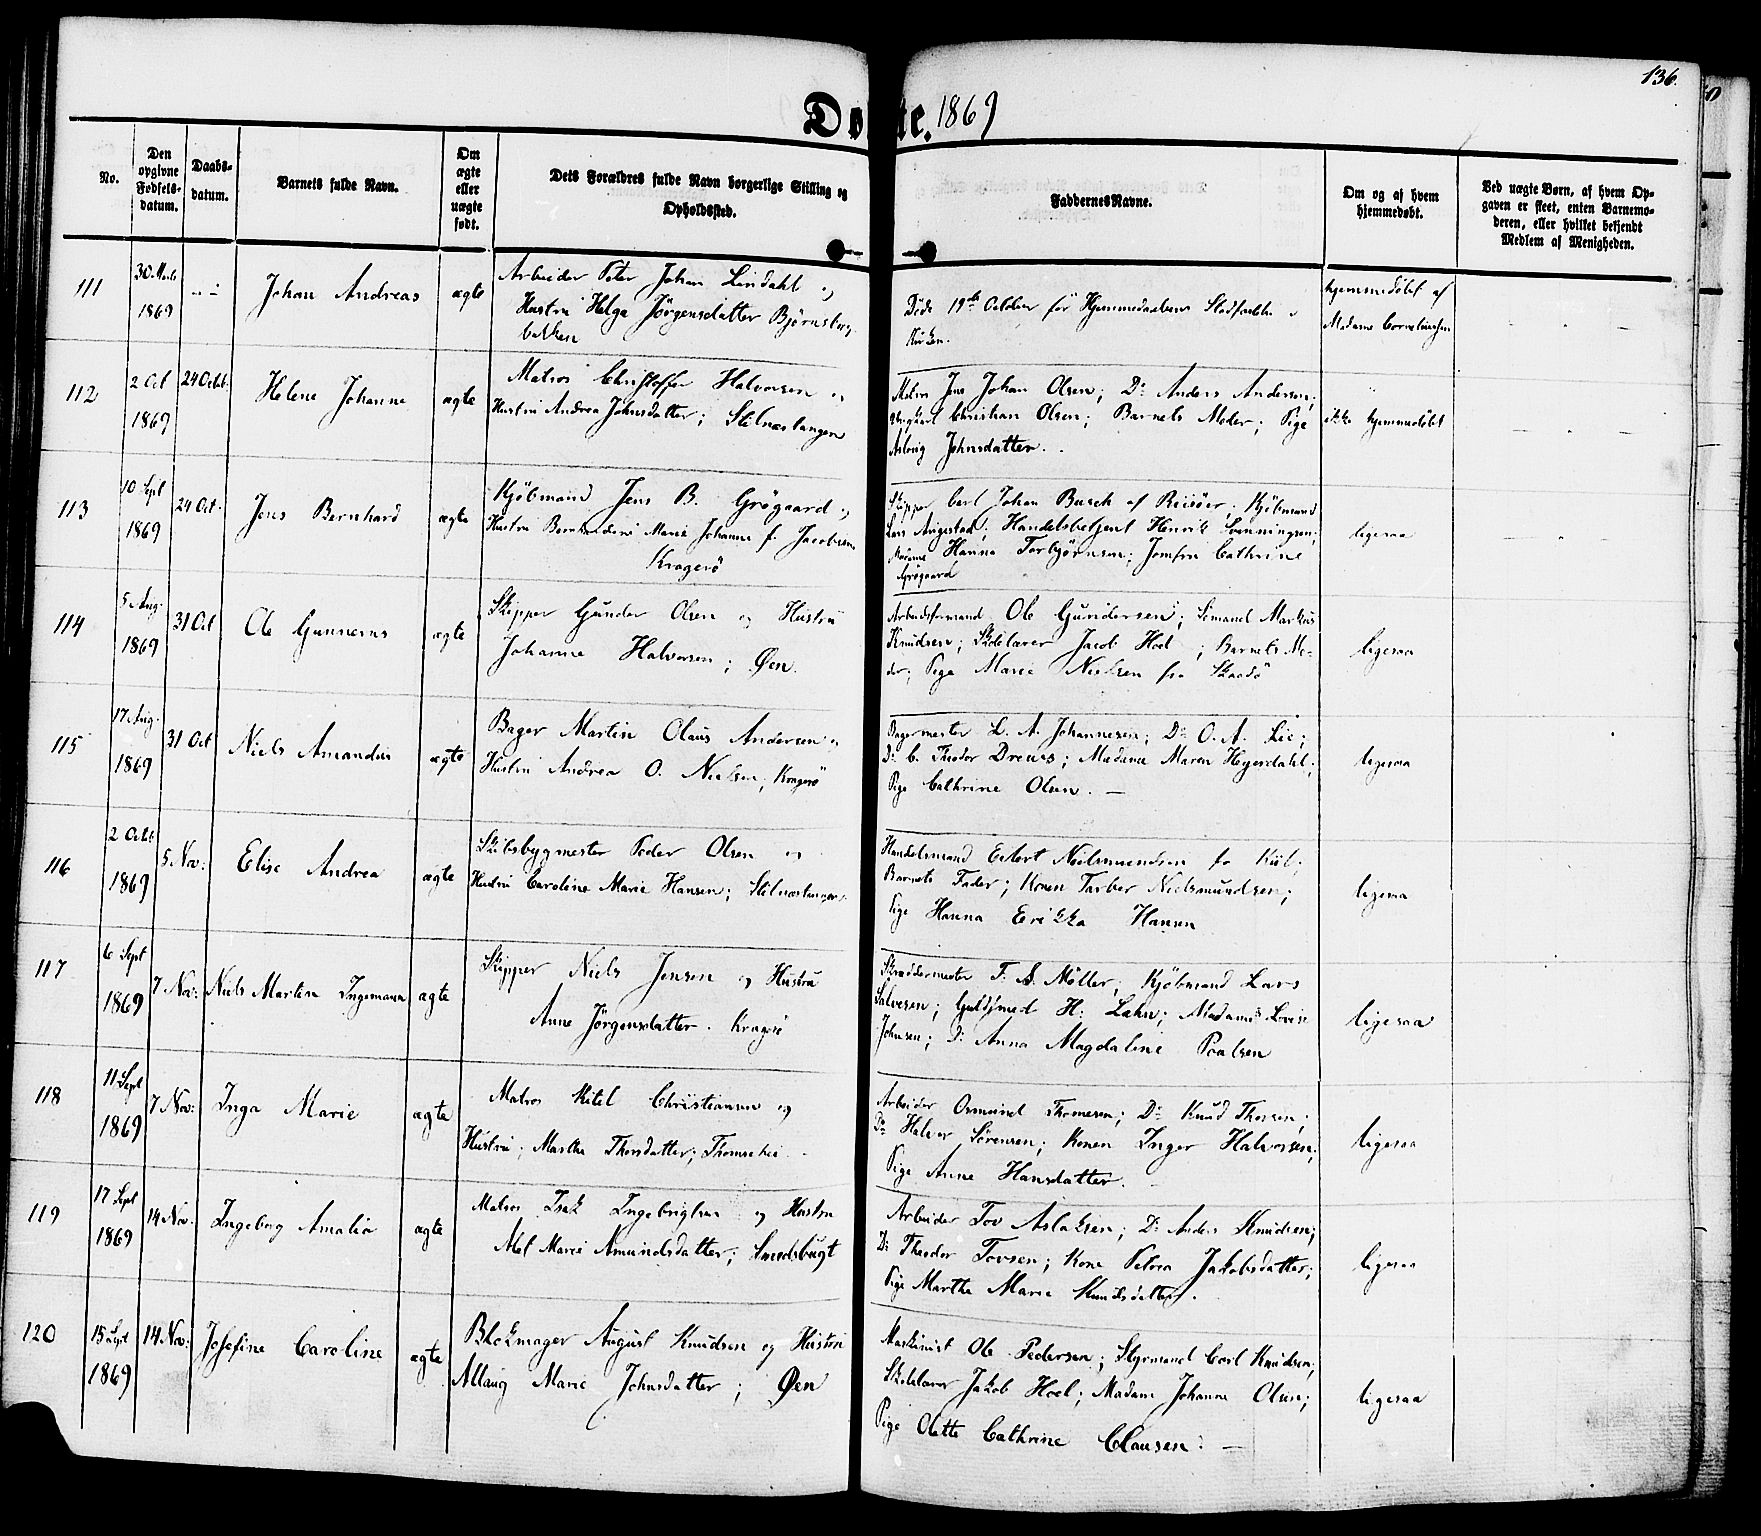 136.
Døbte. 1869
No.
Den opgivne Fødsels-datum.
Daabs-datum.
Barnets fulde Navn.
Om ægte eller uægte født.
Dets Forældres fulde Navn borgerlige Stilling og Opholdssted.
Faddernes Navne.
Om og af hvem hjemmedøbt.
Ved uægte Børn, af hvem Op-
gaven er skeet, enten Barnemo-
deren, eller hvilket bekjendt
Medlem af Menigheden.
111
30 Marts
1869
Johan Andreas
ægte
Arbeider Peter Johan Lindahl og
Hustru Helga Jörgensdatter Björnsberg
bakken
Döde 19de October för Hjemmedaabens Stadfæstelse i
Kirken.
hjemmedöbt af
Madame Corneliussen
112
2 Oct
1869
24 Octob.
Helene Johanne
ægte
Matros Christoffer Halvorsen og
Hustru Andrea Johnsdatter; Stilnæstangen
Matros Jens Johan Olsen; Do Anders Andersen;
Ungkarl Christian Olsen; Barnets Moder; Pige
Aslaug Johnsdatter.
ikke hjemmedöbt
113
10 Sept
1869
24 Oct.
Jens Bernhard
ægte
Kjöbmand Jens B. Grögaard og
Hustru Bernhardine Marie Johanne f. Jacobsen
Kragerö
Skipper Carl Johan Busch af Riisöer; Kjöbmand
Lars Angestad; Handelsbetjent Henrik Svenningsen;
Madame Hanna Torbjörnsen; Jomfru Cathrine
Grögaard
ligesaa
114
5 Aug.
1869
31 Oct
Ole Gunnerius
ægte
Skipper Gunder Olsen og Hustru
Johanne Halvorsen; Øen.
Arbeidsformand Ole Gundersen; Sömand Markus
Knudsen; Skolelærer Jacob Hoel; Barnets Mo-
der; Pige Maren Nielsen fra Skaadö
ligesaa
115
17 Aug.
1869
31 Oct
Niels Amandus
ægte
Bager Martin Olaus Andersen og
Hustru Andrea O. Nielsen; Kragerö
Bagermester L. A. Johannesen; Do O. A. Lie;
Do C. Theodor Drews; Madame Maren Heyerdahl;
Pige Cathrine Olsen. —
ligesaa
116
2 Octb
1869
5 Nov:
Elise Andrea
ægte
Skibsbygmester Peder Olsen og
Hustru Caroline Marie Hansen; Stilnæstangen.
Handelsmand Eilert Nielsmundsen fra Kiil;
Barnets Fader; Konen Tarber Nielsmundsen;
Pige Hanna Erikka Hansen
ligesaa
117
6 Sept
1869
7 Nov:
Niels Martin Ingemann
ægte
Skipper Niels Jensen og Hustru
Anne Jörgensdatter. Kragerö
Skræddermester F. S. Möller; Kjöbmand Lars
Salvesen; Guldsmed H. Lahn; Madame Lovise
Johnsen; Do Anna Magdaline Poulsen
ligesaa
118
11 Sept
1869
7 Nov:
Inga Marie
ægte
Matros Kitel Christiansen og
Hustru; Marthe Thorsdatter;
Arbeider Osmund Thomesen; Do Knud Thorsen;
Do Halvor Sörensen; Konen Inger Halvorsen;
Pige Anne Hansdatter.
ligesaa
119
17 Sept
1869
14 Nov.
Ingeborg Amalia
ægte
Matros Isak Ingebrigtsen og Hustru
Abel Marie Amundsdatter; Smedsbugt
Arbeider Tov Aslaksen; Do Anders Knudsen;
Do Theodor Tovsen; Kone Petora Jakobsdatter;
Pige Marthe Marie Knudsdatter.
ligesaa
120
15 Sept
1869
14 Nov:
Josefine Caroline
ægte
Blokmager August Knudsen og Hustru
Allaug Marie Johnsdatter; Øen
Maskinist Ole Pedersen; Styrmand Carl Knudsen;
Skolelærer Jakob Hoel; Madam Johanne Olsen;
Pige Olette Cathrine Clausen. —
ligesaa